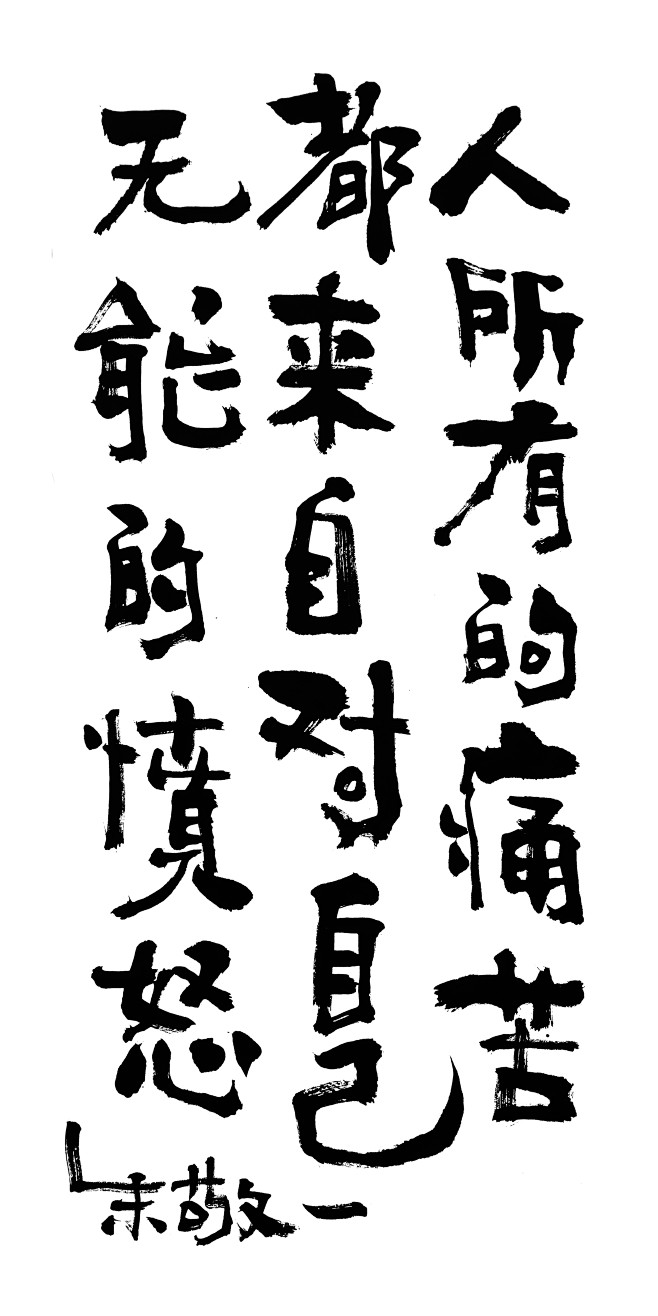 人所有的痛苦
都来自对自己
无能的憤怒
朱敬一